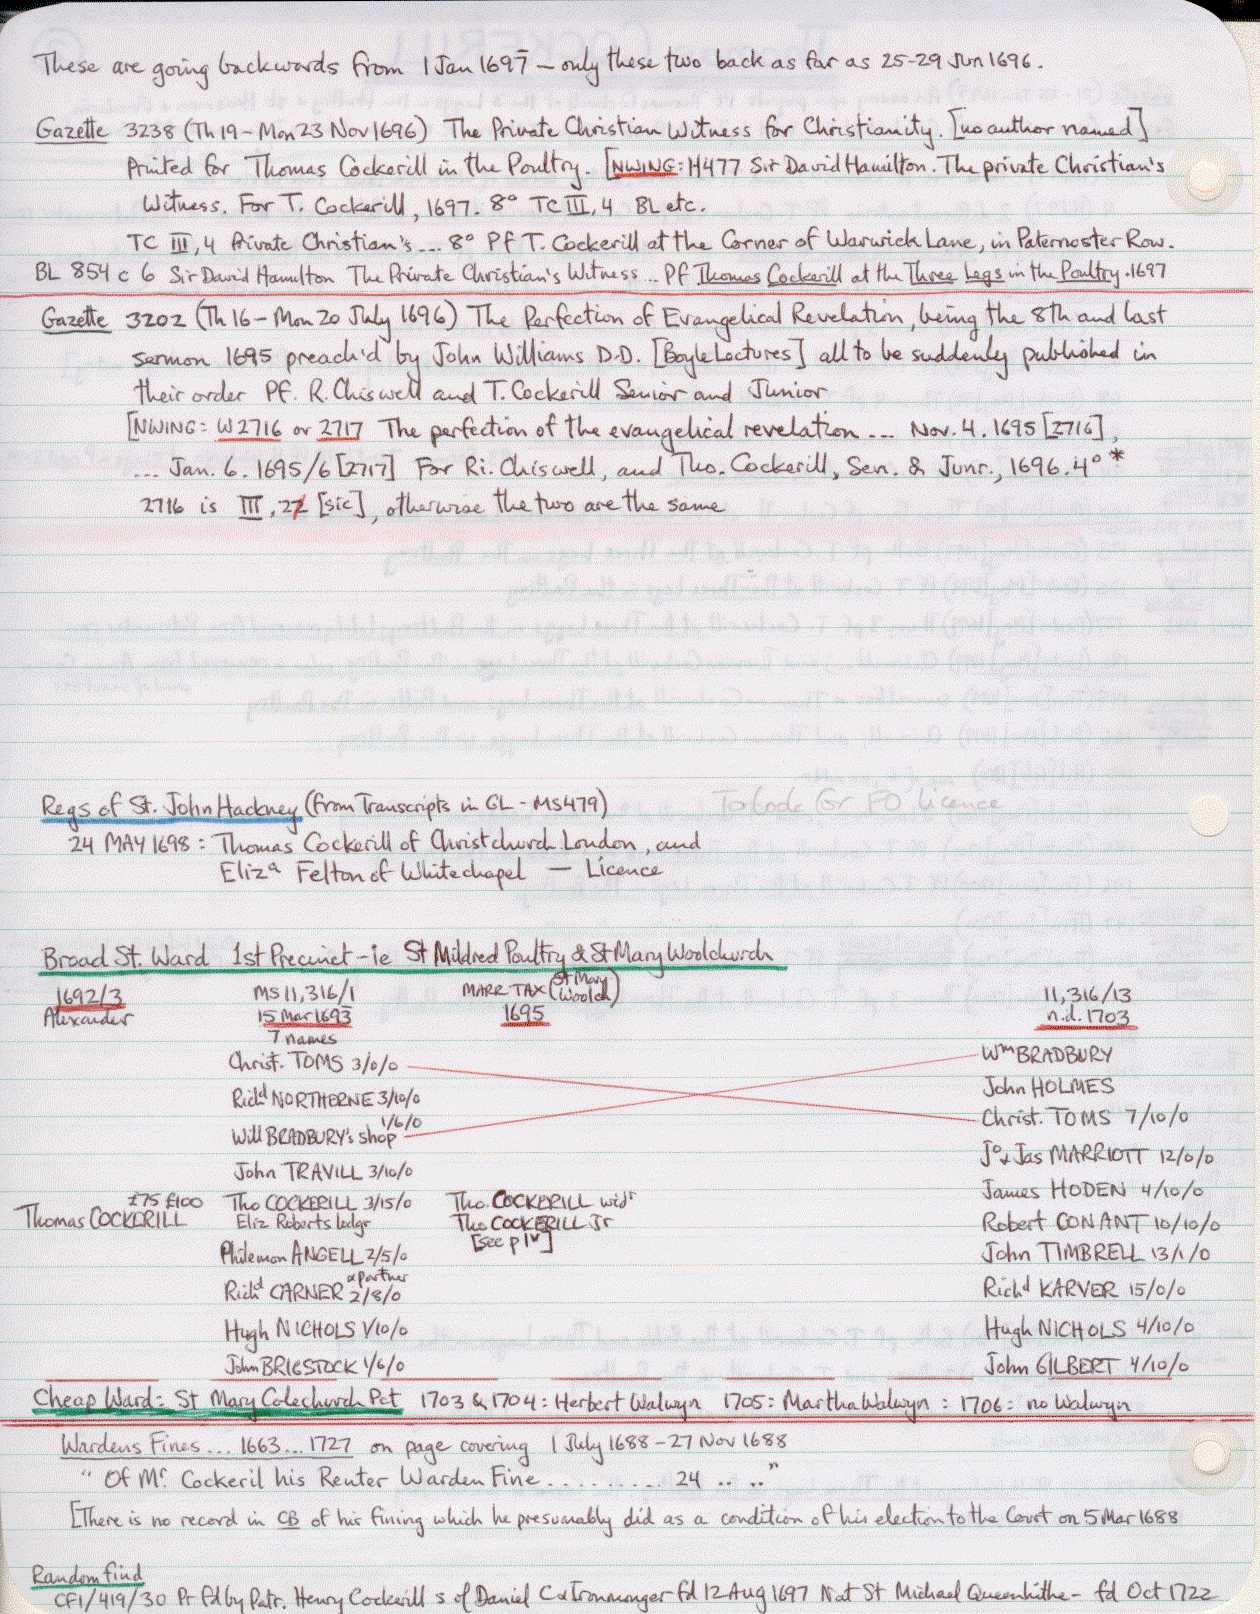 These are going backwards from 1 Jan 1697 – only these two back as far as 25-29 Jun 1696.
Gazette 3238 (Th 19 – Mon 23 Nov 1696) The Private Christian Witness for Christianity. [no author named]
Printed for Thomas Cockerill in the Poultry. [NWING: H477 Sir David Hamilton. The private Christian's
Witness. For T. Cockerill, 1697. 8° TC III, 4 BL etc.
TC III, 4 Private Christian's ... 8° Pf T. Cockerill at the Corner of Warwick Lane, in Paternoster Row.
BL 854 c 6 Sir David Hamilton The Private Christian's Witness ... Pf Thomas Cockerill at the Three Legs in the Poultry. 1697
Gazette 3202 (Th 16 – Mon 20 July 1696) The Perfection of Evangelical Revelation, being the 8th and last
sermon 1695 preach'd by John Williams D.D. [Boyle Lectures] all to be suddenly published in
their order Pf. R. Chiswell and T. Cockerill Senior and Junior
[NWING: W2716 or 2717 The perfection of the evangelical revelation ... Nov. 4. 1695 [2716],
... Jan. 6. 1695/6 [2717] For Ri. Chiswell, and Tho. Cockerill, Sen. & Junr., 1696. 4° *
2716 is III, 27 [sic], otherwise the two are the same
Regs of St. John Hackney (from Transcripts in GL – MS479)
24 MAY 1698 : Thomas Cockerill of Christchurch London, and
Eliza Felton of Whitechapel — Licence
Broad St. Ward 1st Precinct – ie St Mildred Poultry & St Mary Woolchurch
1692/3 MS 11,316/1 MARR TAX (St Mary Woolch) 11,316/13
Alexander 15 Mar 1693 1695 n.d. 1703
7 names
Christ. TOMS 3/0/0 Wm BRADBURY
Richd NORTHERNE 3/10/0 John HOLMES
1/6/0
Will BRADBURY's shop Christ. TOMS 7/10/0
John TRAVILL 3/10/0 Jo & Jas MARRIOTT 12/0/0
£75 £100 Tho COCKERILL 3/15/0 Tho. COCKERILL widr James HODEN 4/10/0
Thomas COCKERILL Eliz Roberts lodgr Tho COCKERILL Jr Robert CONANT 10/10/0
[see p 1v]
Philemon ANGELL 2/5/0 John TIMBRELL 13/1/0
Richd CARNER & partner 2/8/0 Richd KARVER 15/0/0
Hugh NICHOLS 1/10/0 Hugh NICHOLS 4/10/0
John BRIGSTOCK 1/6/0 John GILBERT 4/10/0
Cheap Ward: St Mary Colechurch Pct 1703 & 1704: Herbert Walwyn 1705: Martha Walwyn : 1706: no Walwyn
Wardens Fines ... 1663 ... 1727 on page covering 1 July 1688 – 27 Nov 1688
" Of Mr. Cockeril his Renter Warden Fine . . . . . . . . . 24 .. .. "
[There is no record in CB of his fining which he presumably did as a condition of his election to the Court on 5 Mar 1688
Random find
CF1/419/30 Pr fd by Patr. Henry Cockerill s of Daniel C & Ironmonger fd 12 Aug 1697 Nat St Michael Queenhithe – fd Oct 1722